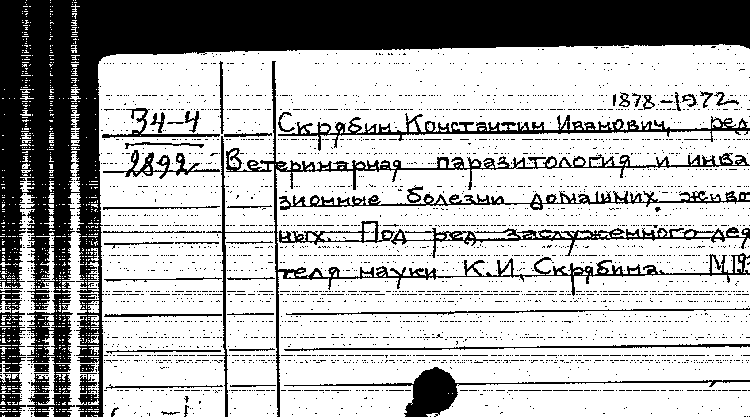 1878-1972
34-4
Скрябин, Константин Иванович, ред
2892
Ветеринарная паразитология и инва
зионные болезни домашних живот
ных. Под ред заслуженного дея
теля науки К.И. Скрябина. М, 193